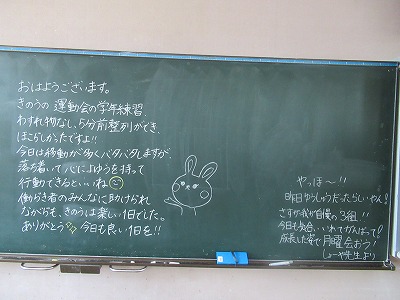 おはようございます。
きのうの運動会の学年練習、
わすれ物なし、5分前整列ができ、
ほこらしかったですよ!!
今日は移動が多くバタバタしますが、
落ち着いて心によゆうを持って
行動できるといいね
働らき者のみんなに助けられ
ながらも、きのうは楽しい1日でした。
ありがとう 今日も良い1日を!!
やっほ〜!!
昨日めっしゅうだったらしいやん!
さすが我が自慢の3組!!
今日も気合いいれてがんばって!
成長した姿で月曜会おう!
しょーや先生より